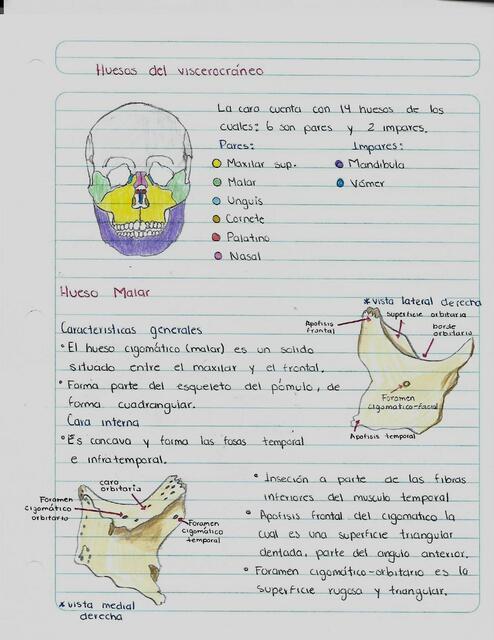 Huesos del viscerocráneo
La cara cuenta con 14 huesos de los
cuales: 6 son pares y 2 impares.
Pares: Impares:
Maxilar sup. Mandibula
Malar Vómer
Unguis
Cornete
Palatino
Nasal
Hueso Malar
* vista lateral derecha
Apofisis frontal
superficie orbitaria
borde orbitario
Foramen cigomatico-facial
Apofisis temporal
Caracteristicas generales
• El hueso cigomático (malar) es un solido
situado entre el maxilar y el frontal.
• Forma parte del esqueleto del pómulo, de
forma cuadrangular.
Cara interna
• Es concava y forma las fosas temporal
e infratemporal.
cara orbitaria
Foramen cigomático orbitario
Foramen cigomático temporal
* vista medial derecha
• Inseción a parte de las fibras
inferiores del musculo temporal
• Apofisis frontal del cigomatico la
cual es una superficie triangular
dentada, parte del angulo anterior.
• Foramen cigomático-orbitario es la
superficie rugosa y triangular.